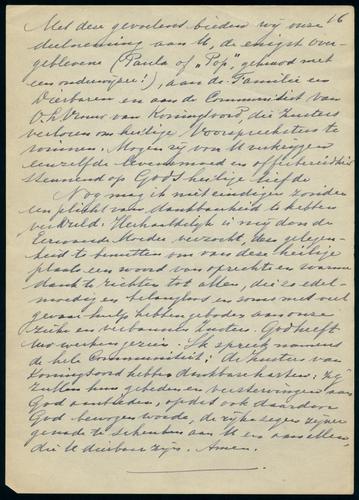 Met deze gevoelens bieden wij onze 16
deelneming aan U, de enigst over-
geblevene (Paula of "Pop", gehuwd met
een onderwijzer!), aan de Familie en
Dierbaren en aan de Communiteit van
O.L. Vrouw van Koningsoord, die Zusters
verloren om heilige Voorspreeksters te
winnen. Mogen zij van U verkrijgen
eenzelfde levensmoed en offerbereidheid
steunend op Gods heilige liefde.
Nog mag ik niet eindigen zonder
een plicht van dankbaarheid te hebben
vervuld. Herhaaldelijk is mij door de
Eerwaarde Moeder verzocht, deze gelegen-
heid te benutten om van deze heilige
plaats een woord van oprechte en warme
dank te richten tot allen, die zo edel-
moedig en belangloos en soms met veel
gevaar hulp hebben geboden aan onze
zieke en verbannen Zusters. God heeft
Uw werken gezien. Ik spreek namens
de hele Communiteit: de Zusters van
Koningsoord hebben dankbare harten; zij
zullen hun gebeden en verstervingen aan
God aanbieden, opdat ook daardoor
God bewogen worde, de rijke zegen zijner
genade te schenken aan U en aan allen,
die U dierbaar zijn. Amen.